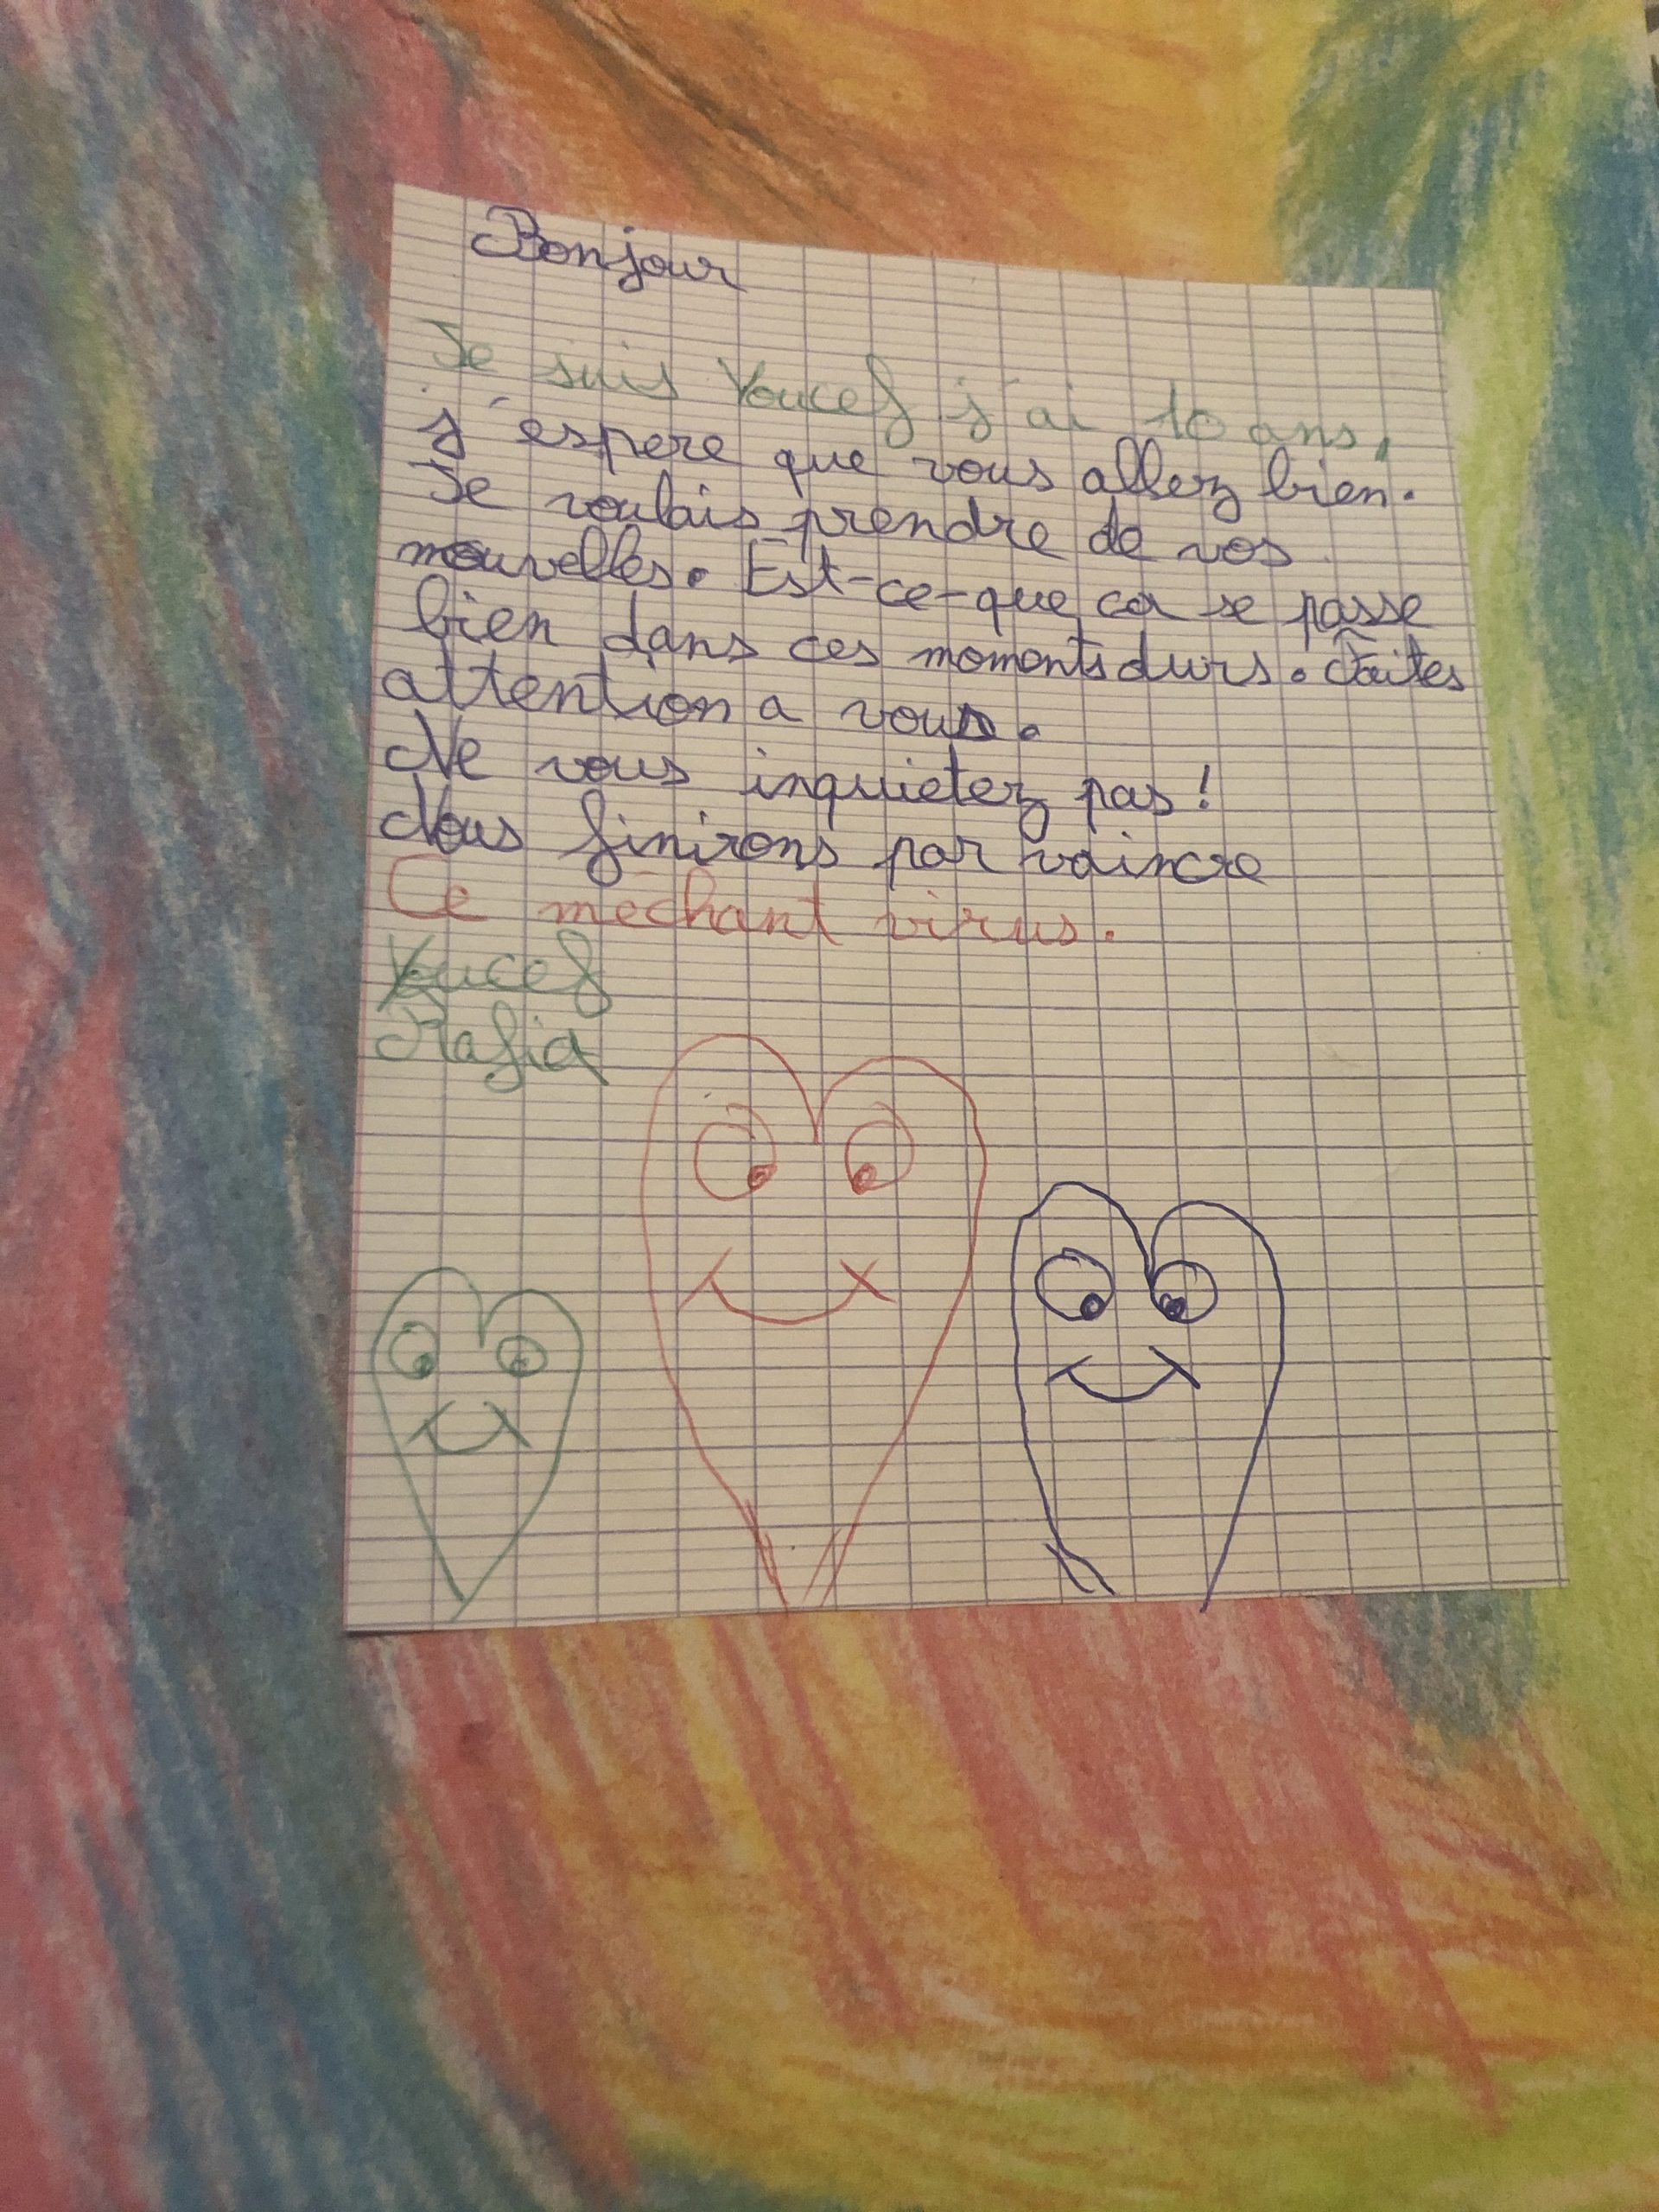 Bonjour
Je suis Youcef j'ai 10 ans,
j'espere que vous allez bien.
Je voulais prendre de vos
nouvelles. Est-ce-que ca se passe
bien dans ces moments durs. Faites
attention a vous.
Ne vous inquietez pas!
Nous finirons par vaincre
Ce méchant virus.
Youcef
Rafia